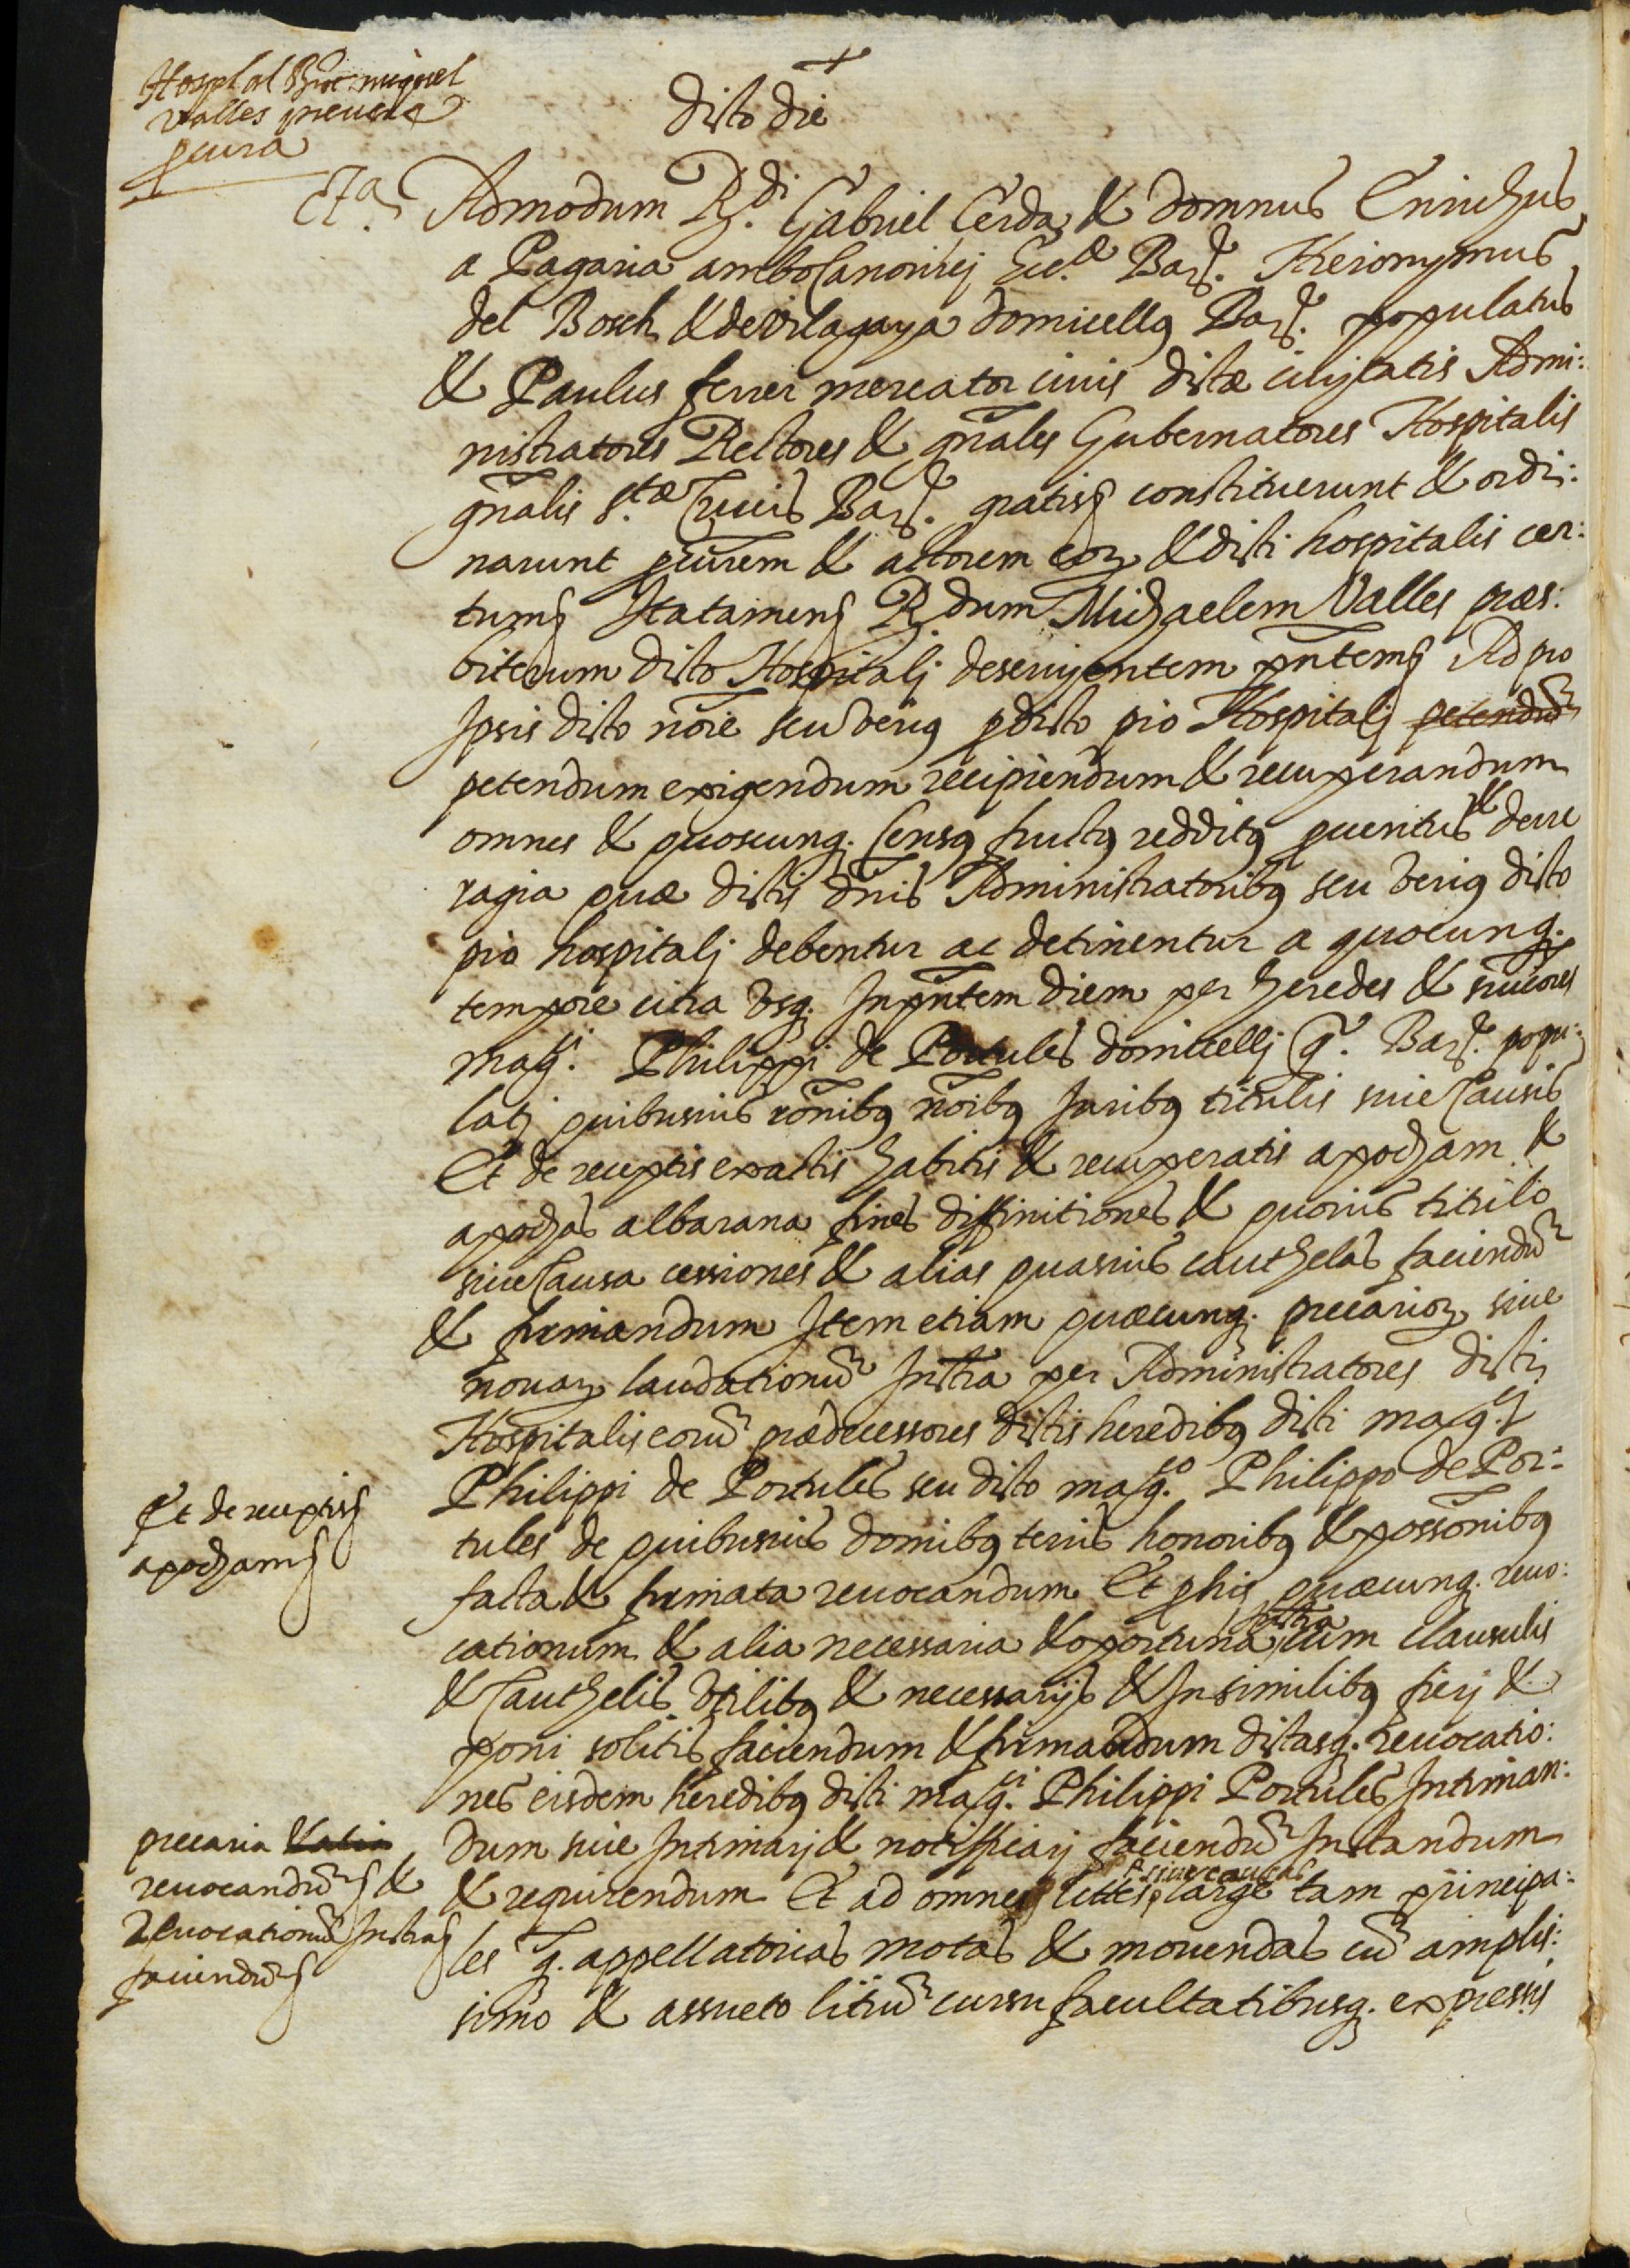 Hospl al Rnt miquel
Valles preuere
pcura
+
dicto die
Admodum R.di Gabriel Cerda & domnus Enrichus
a Pagaria ambo Canonicj Ecc.æ Bar. Hieronymus
del Bosch & de Vilagaya domicellus Bar. populatus
& Paulus ferrer mercator ciuis dictæ ciuitatis Admi:
nistratores Rectores & gñales Gubernatores Hospitalis
gñalis S.tæ Crucis Bar. gratis constituerunt & ordi:
narunt pcurem & actorem eoꝝ & dicti hospitalis cer:
tum Rdum Michaelem Valles præs:
biterum dicto Hospitalj deseruientem pñtem Ad pro
Ipsis dicto noīe seu verius pdicto pio Hospitalj petendū
petendum exigendum recipiendum & recuperandum
omnes & quoscunq. Census fructus redditus prouentus & derre
ragia quæ dictis dñis Administratoribus seu verius dicto
pio hospitalj debentur ac detinentur a quocunq.
tempore citra vsq. In pñtem diem per heredes & succores
magci. Philippi de Portules domicellj q. Bar. popu:
latj quibusuis rōnibus noībus Juribus titulis siue Causis
Et de receptis exactis habitis & recuperatis apocham &
apochas albarana fines diffinitiones & quouis titulo
siue Causa cessiones & alias quasuis cauthelas faciendū
& firmandum Item etiam quæcunq. precarioꝝ siue
nouaꝝ laudationū Instra per Administratores dicti
Hospitalis eorū prædecessores dictis heredibus dicti magci.
Philippi de Portules seu dicto magco. Philippo de Por:
tules de quibusuis domibus terris honoribus & possōnibus
facta & firmata reuocandum Et phis quæcunq. reuo:
cationum & alia necessaria & oportuna Instra cum clausulis
& Cauthelis vtilibus & necessarijs & In similibus fierj &
poni solitis faciendum & firmandum dictasq. reuocatio:
nes eisdem heredibus dicti magci. Philippi Portules Intiman:
dum siue Intimarj & notificarj faciendū Instandum
& requirendum Et ad omnes littes siue causas large tam principa:
les q. appellatorias motas & mouendas cū amplis:
simo & assueto litiū cursu facultatibusq. expressis
Et de receptis
apocham
precaria & alia
reuocandū &
Reuocationū Instra
faciendū